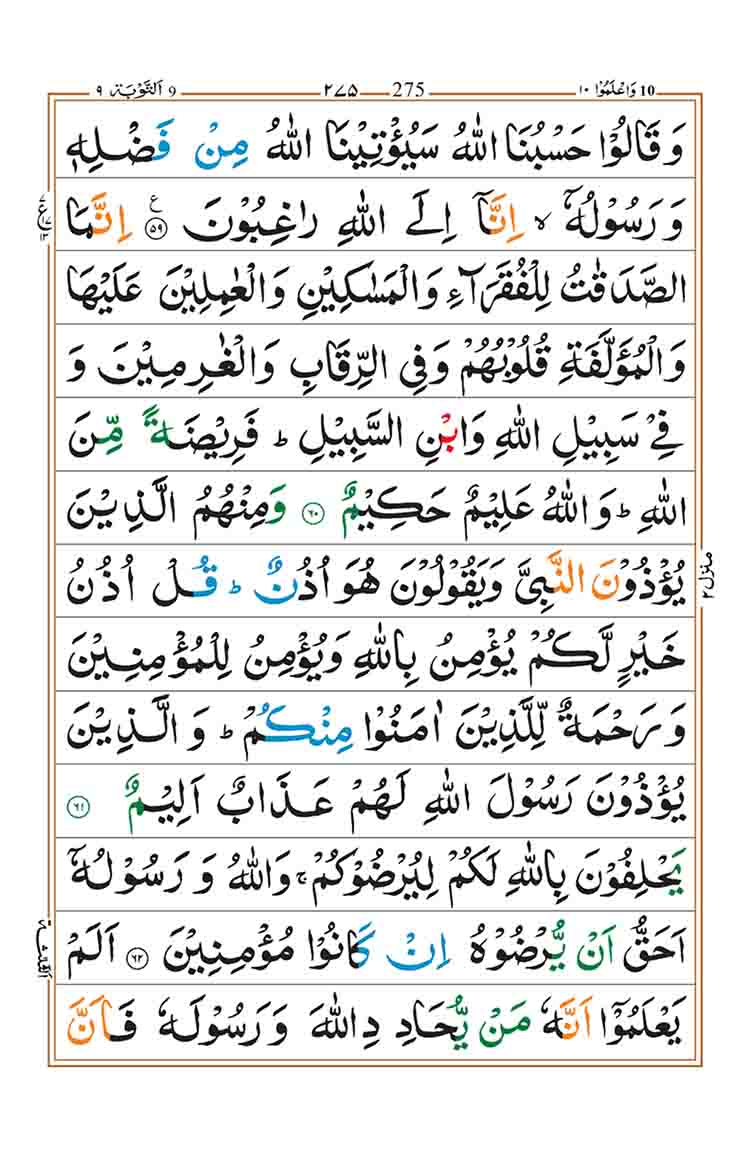 9 اَلتَّوْبَة ٩ 275 ٢٧٥ 10 وَاعْلَمُوْا ١٠
وَ قَالُوْا حَسْبُنَا اللّٰهُ سَيُؤْتِيْنَا اللّٰهُ مِنْ فَضْلِهٖ
وَ رَسُوْلُهٗۤ ۙ اِنَّاۤ اِلَى اللّٰهِ رَاغِبُوْنَ ۩ع ٥٩ اِنَّمَا
الصَّدَقٰتُ لِلْفُقَرَآءِ وَالْمَسٰكِيْنِ وَالْعٰمِلِيْنَ عَلَيْهَا
وَالْمُؤَلَّفَةِ قُلُوْبُهُمْ وَفِي الرِّقَابِ وَالْغٰرِمِيْنَ وَ
فِيْ سَبِيْلِ اللّٰهِ وَابْنِ السَّبِيْلِ ؕ فَرِيْضَةً مِّنَ
اللّٰهِ ؕ وَاللّٰهُ عَلِيْمٌ حَكِيْمٌ ٦٠ وَمِنْهُمُ الَّذِيْنَ
يُؤْذُوْنَ النَّبِيَّ وَيَقُوْلُوْنَ هُوَ اُذُنٌ ؕ قُلْ اُذُنُ
خَيْرٍ لَّكُمْ يُؤْمِنُ بِاللّٰهِ وَيُؤْمِنُ لِلْمُؤْمِنِيْنَ
وَ رَحْمَةٌ لِّلَّذِيْنَ اٰمَنُوْا مِنْكُمْ ؕ وَ الَّذِيْنَ
يُؤْذُوْنَ رَسُوْلَ اللّٰهِ لَهُمْ عَذَابٌ اَلِيْمٌ ٦١
يَحْلِفُوْنَ بِاللّٰهِ لَكُمْ لِيُرْضُوْكُمْ ۚ وَاللّٰهُ وَ رَسُوْلُهٗۤ
اَحَقُّ اَنْ يُّرْضُوْهُ اِنْ كَانُوْا مُؤْمِنِيْنَ ٦٢ اَلَمْ
يَعْلَمُوْۤا اَنَّهٗ مَنْ يُّحَادِدِ اللّٰهَ وَ رَسُوْلَهٗ فَاَنَّ
منزل ٢